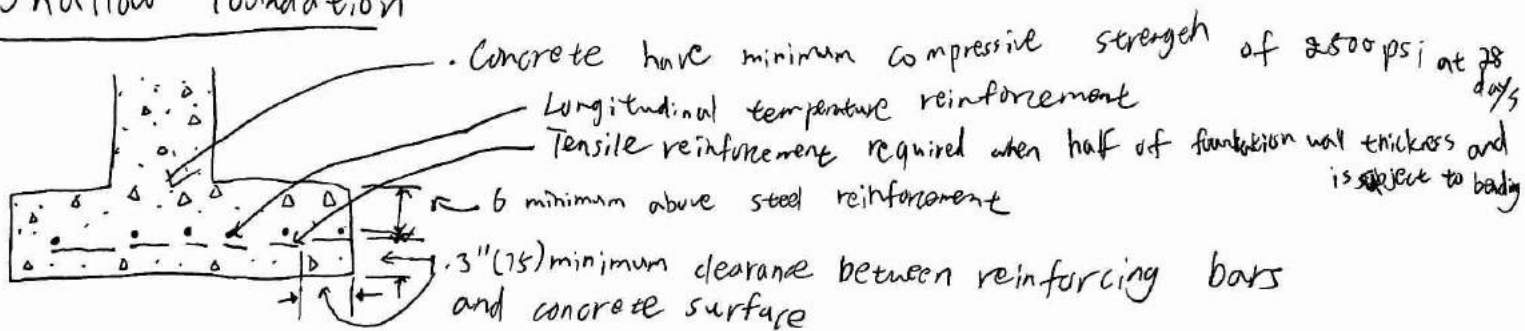 Shallow foundation
. Concrete have minimum compressive strength of 2500 psi at 28 days
Longitudinal temperature reinforcement
Tensile reinforcement required when half of foundation wall thickness and is subject to bending
6 minimum above steel reinforcement
. 3" (75) minimum clearance between reinforcing bars
and concrete surface